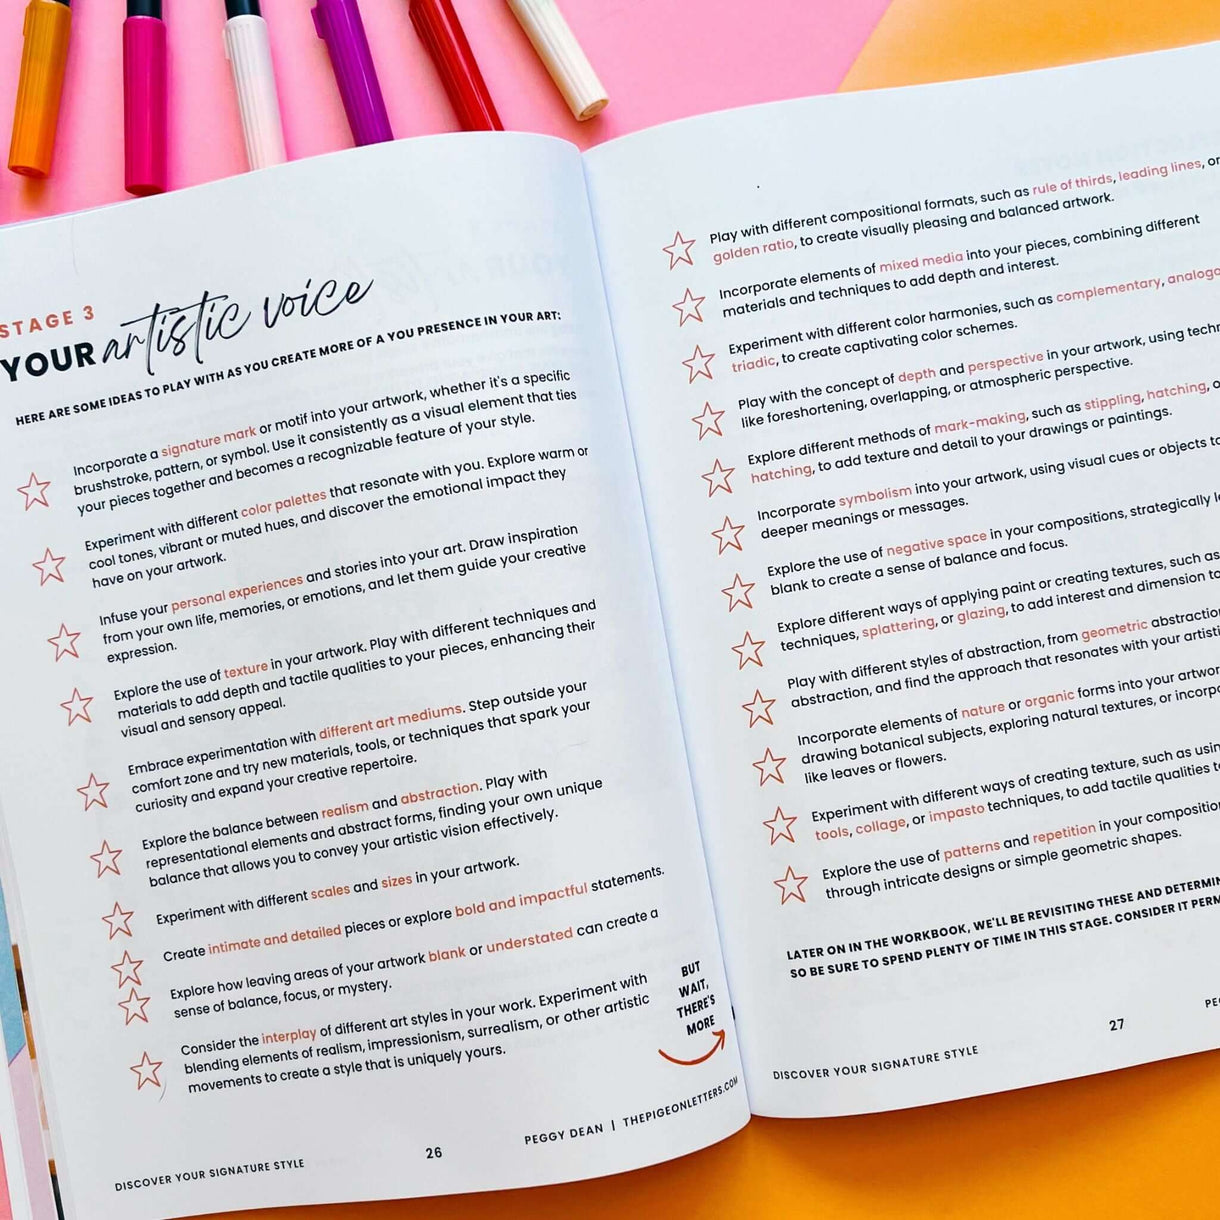 STAGE 3
YOUR artistic voice
HERE ARE SOME IDEAS TO PLAY WITH AS YOU CREATE MORE OF A YOU PRESENCE IN YOUR ART:
Incorporate a signature mark or motif into your artwork, whether it's a specific
brushstroke, pattern, or symbol. Use it consistently as a visual element that ties
your pieces together and becomes a recognizable feature of your style.
Experiment with different color palettes that resonate with you. Explore warm or
cool tones, vibrant or muted hues, and discover the emotional impact they
have on your artwork.
Infuse your personal experiences and stories into your art. Draw inspiration
from your own life, memories, or emotions, and let them guide your creative
expression.
Explore the use of texture in your artwork. Play with different techniques and
materials to add depth and tactile qualities to your pieces, enhancing their
visual and sensory appeal.
Embrace experimentation with different art mediums. Step outside your
comfort zone and try new materials, tools, or techniques that spark your
curiosity and expand your creative repertoire.
Explore the balance between realism and abstraction. Play with
representational elements and abstract forms, finding your own unique
balance that allows you to convey your artistic vision effectively.
Experiment with different scales and sizes in your artwork.
Create intimate and detailed pieces or explore bold and impactful statements.
Explore how leaving areas of your artwork blank or understated can create a
sense of balance, focus, or mystery.
Consider the interplay of different art styles in your work. Experiment with
blending elements of realism, impressionism, surrealism, or other artistic
movements to create a style that is uniquely yours.
BUT
WAIT,
THERE'S
MORE
PEGGY DEAN | THEPIGEONLETTERS.COM
26
DISCOVER YOUR SIGNATURE STYLE
Play with different compositional formats, such as rule of thirds, leading lines, or
golden ratio, to create visually pleasing and balanced artwork.
Incorporate elements of mixed media into your pieces, combining different
materials and techniques to add depth and interest.
Experiment with different color harmonies, such as complementary,
triadic, to create captivating color schemes.
Play with the concept of depth and perspective in your artwork, using
like foreshortening, overlapping, or atmospheric perspective.
Explore different methods of mark-making, such as stippling, hatching,
hatching, to add texture and detail to your drawings or paintings.
Incorporate symbolism into your artwork, using visual cues or objects
deeper meanings or messages.
Explore the use of negative space in your compositions, strategically
blank to create a sense of balance and focus.
Explore different ways of applying paint or creating textures, such as
techniques, splattering, or glazing, to add interest and dimension
Play with different styles of abstraction, from geometric
abstraction, and find the approach that resonates with your
Incorporate elements of nature or organic forms into your
drawing botanical subjects, exploring natural textures, or
like leaves or flowers.
Experiment with different ways of creating texture, such as
tools, collage, or impasto techniques, to add tactile qualities
Explore the use of patterns and repetition in your
through intricate designs or simple geometric shapes.
LATER ON IN THE WORKBOOK, WE'LL BE REVISITING THESE AND
SO BE SURE TO SPEND PLENTY OF TIME IN THIS STAGE. CONSIDER IT
27
DISCOVER YOUR SIGNATURE STYLE